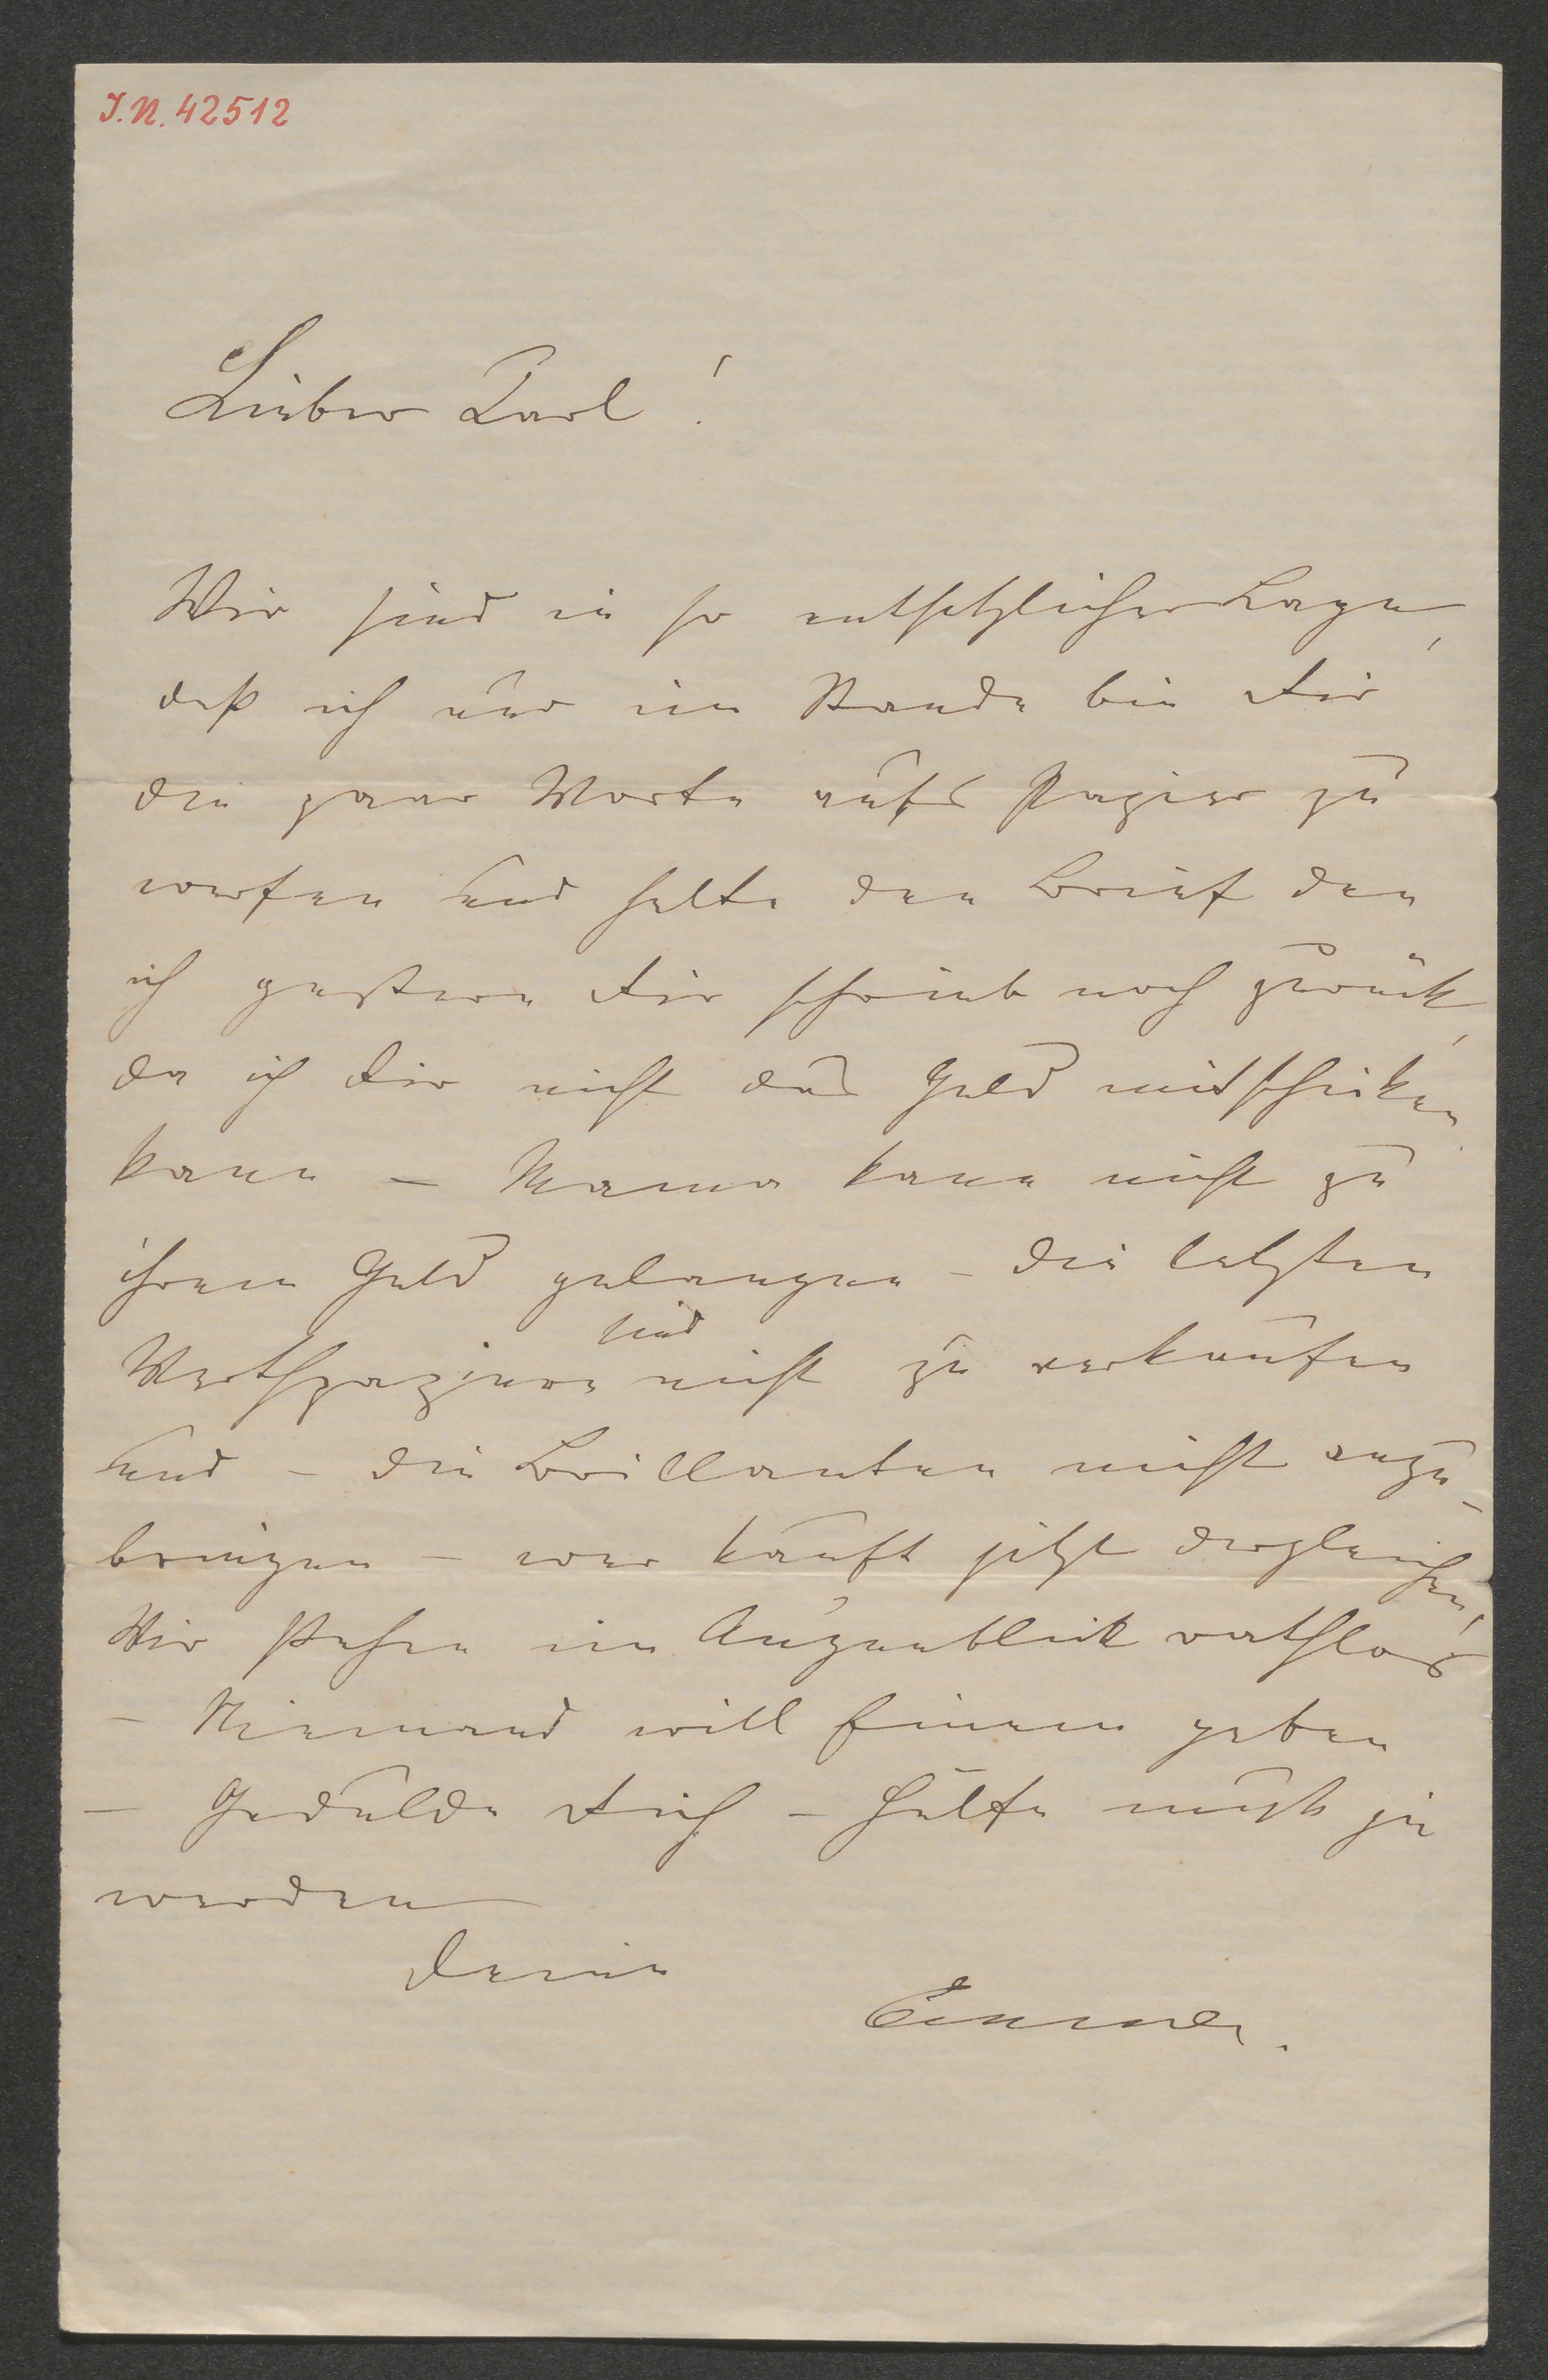 I.N. 42512
Lieber Carl!
Wir sind in so entsetzlicher Lage,
daß ich nur im Stande bin Dir
die paar Worte aufs Papier zu
werfen und halte den Brief den
ich gestern Dir schrieb noch zurück,
da ich Dir nicht das Geld mitschicken
kann – Mama kann nicht zu
ihrem Geld gelangen – die letzten
sind
Werthpapiere nicht zu verkaufen
und – die Brillanten nicht anzu-
bringen – wer kauft jetzt dergleichen,
Wir stehen im Augenblick rathlos
– Niemand will Einem geben
– Gedulde Dich – Hülfe muß ja
werden
Deine
Emma.